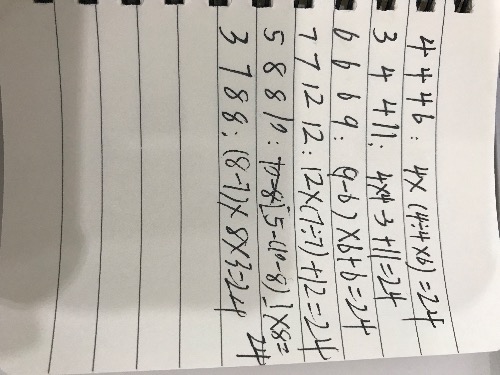 4 4 4 6 : 4×(4÷4×6)=24
3 4 4 11 : 4×4-3+11=24
6 6 6 9 : (9-6)×6+6=24
7 7 12 12 : 12×(7÷7)+12=24
5 8 8 10 : [5-(10-8)]×8=
24
3 7 8 8 : (8-7)×8×3=24